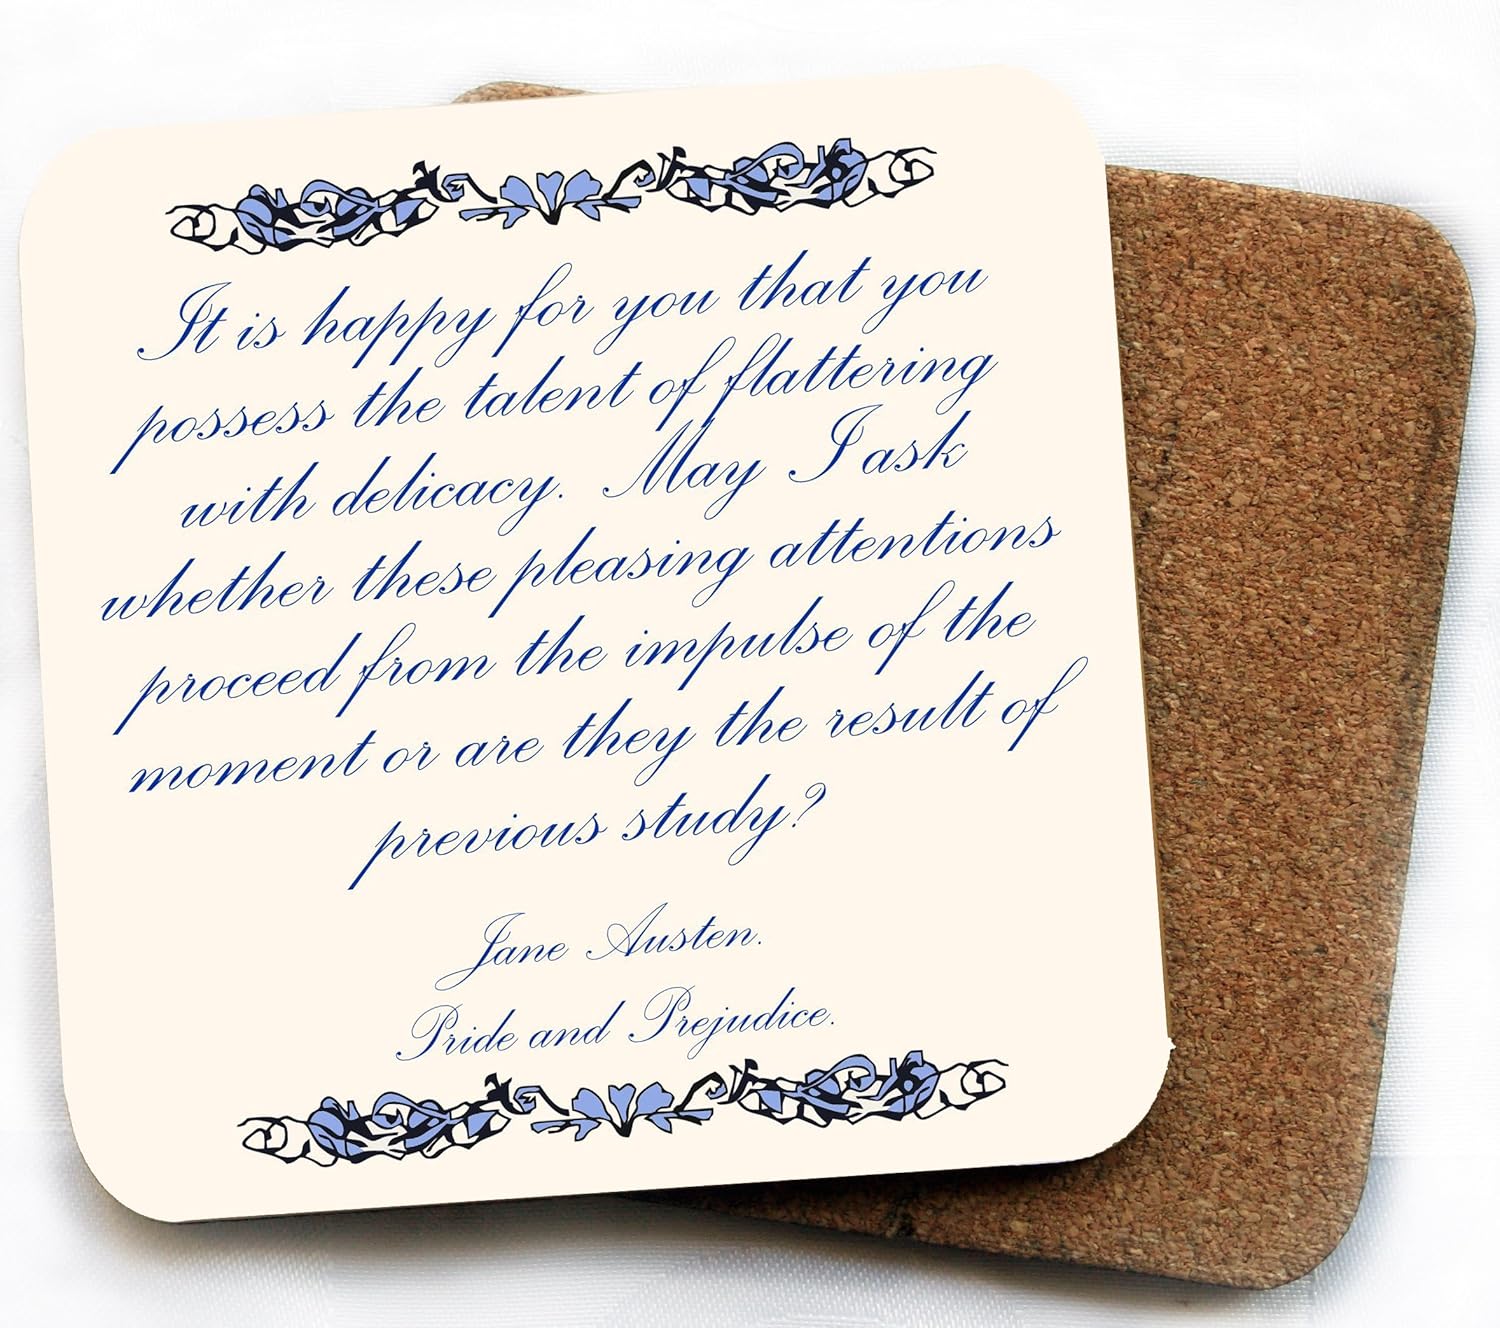 It is happy for you that you
possess the talent of flattering
with delicacy. May I ask
whether these pleasing attentions
proceed from the impulse of the
moment or are they the result of
previous study?
Jane Austen.
Pride and Prejudice.